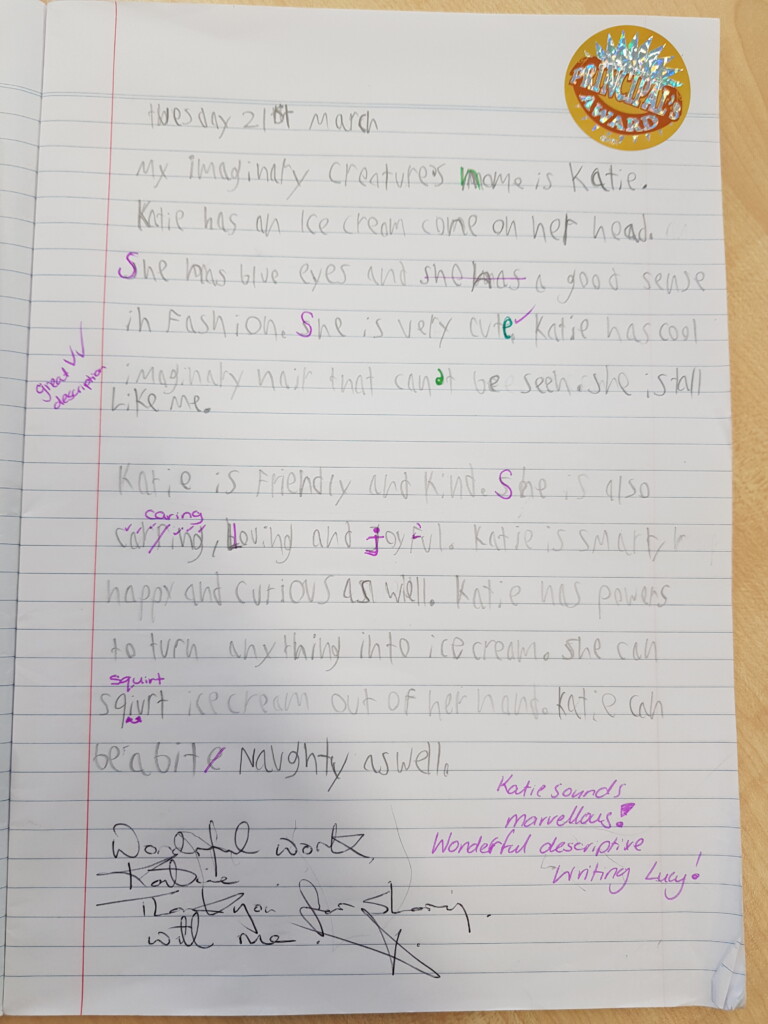 PRINCIPAL'S
AWARD
tuesday 21st March
My imaginary creature's name is Katie.
Katie has an Ice cream come on her head.
She has blue eyes and she has a good sense
in Fashion. She is very cute. Katie has cool
great
description
imaginary hair that can't be seen. she is tall
Like me.
Katie is Friendly and Kind. She is also
caring
carring, Loving and joyful. Katie is smart,
happy and curious as well. Katie has powers
to turn anything into ice cream. she can
squirt
sqiurt ice cream out of her hand. Katie can
be a bite Naughty as well.
Katie sounds
marvellous!
Wonderful descriptive
Writing Lucy!
Wonderful work,
thank you for sharing
with me.